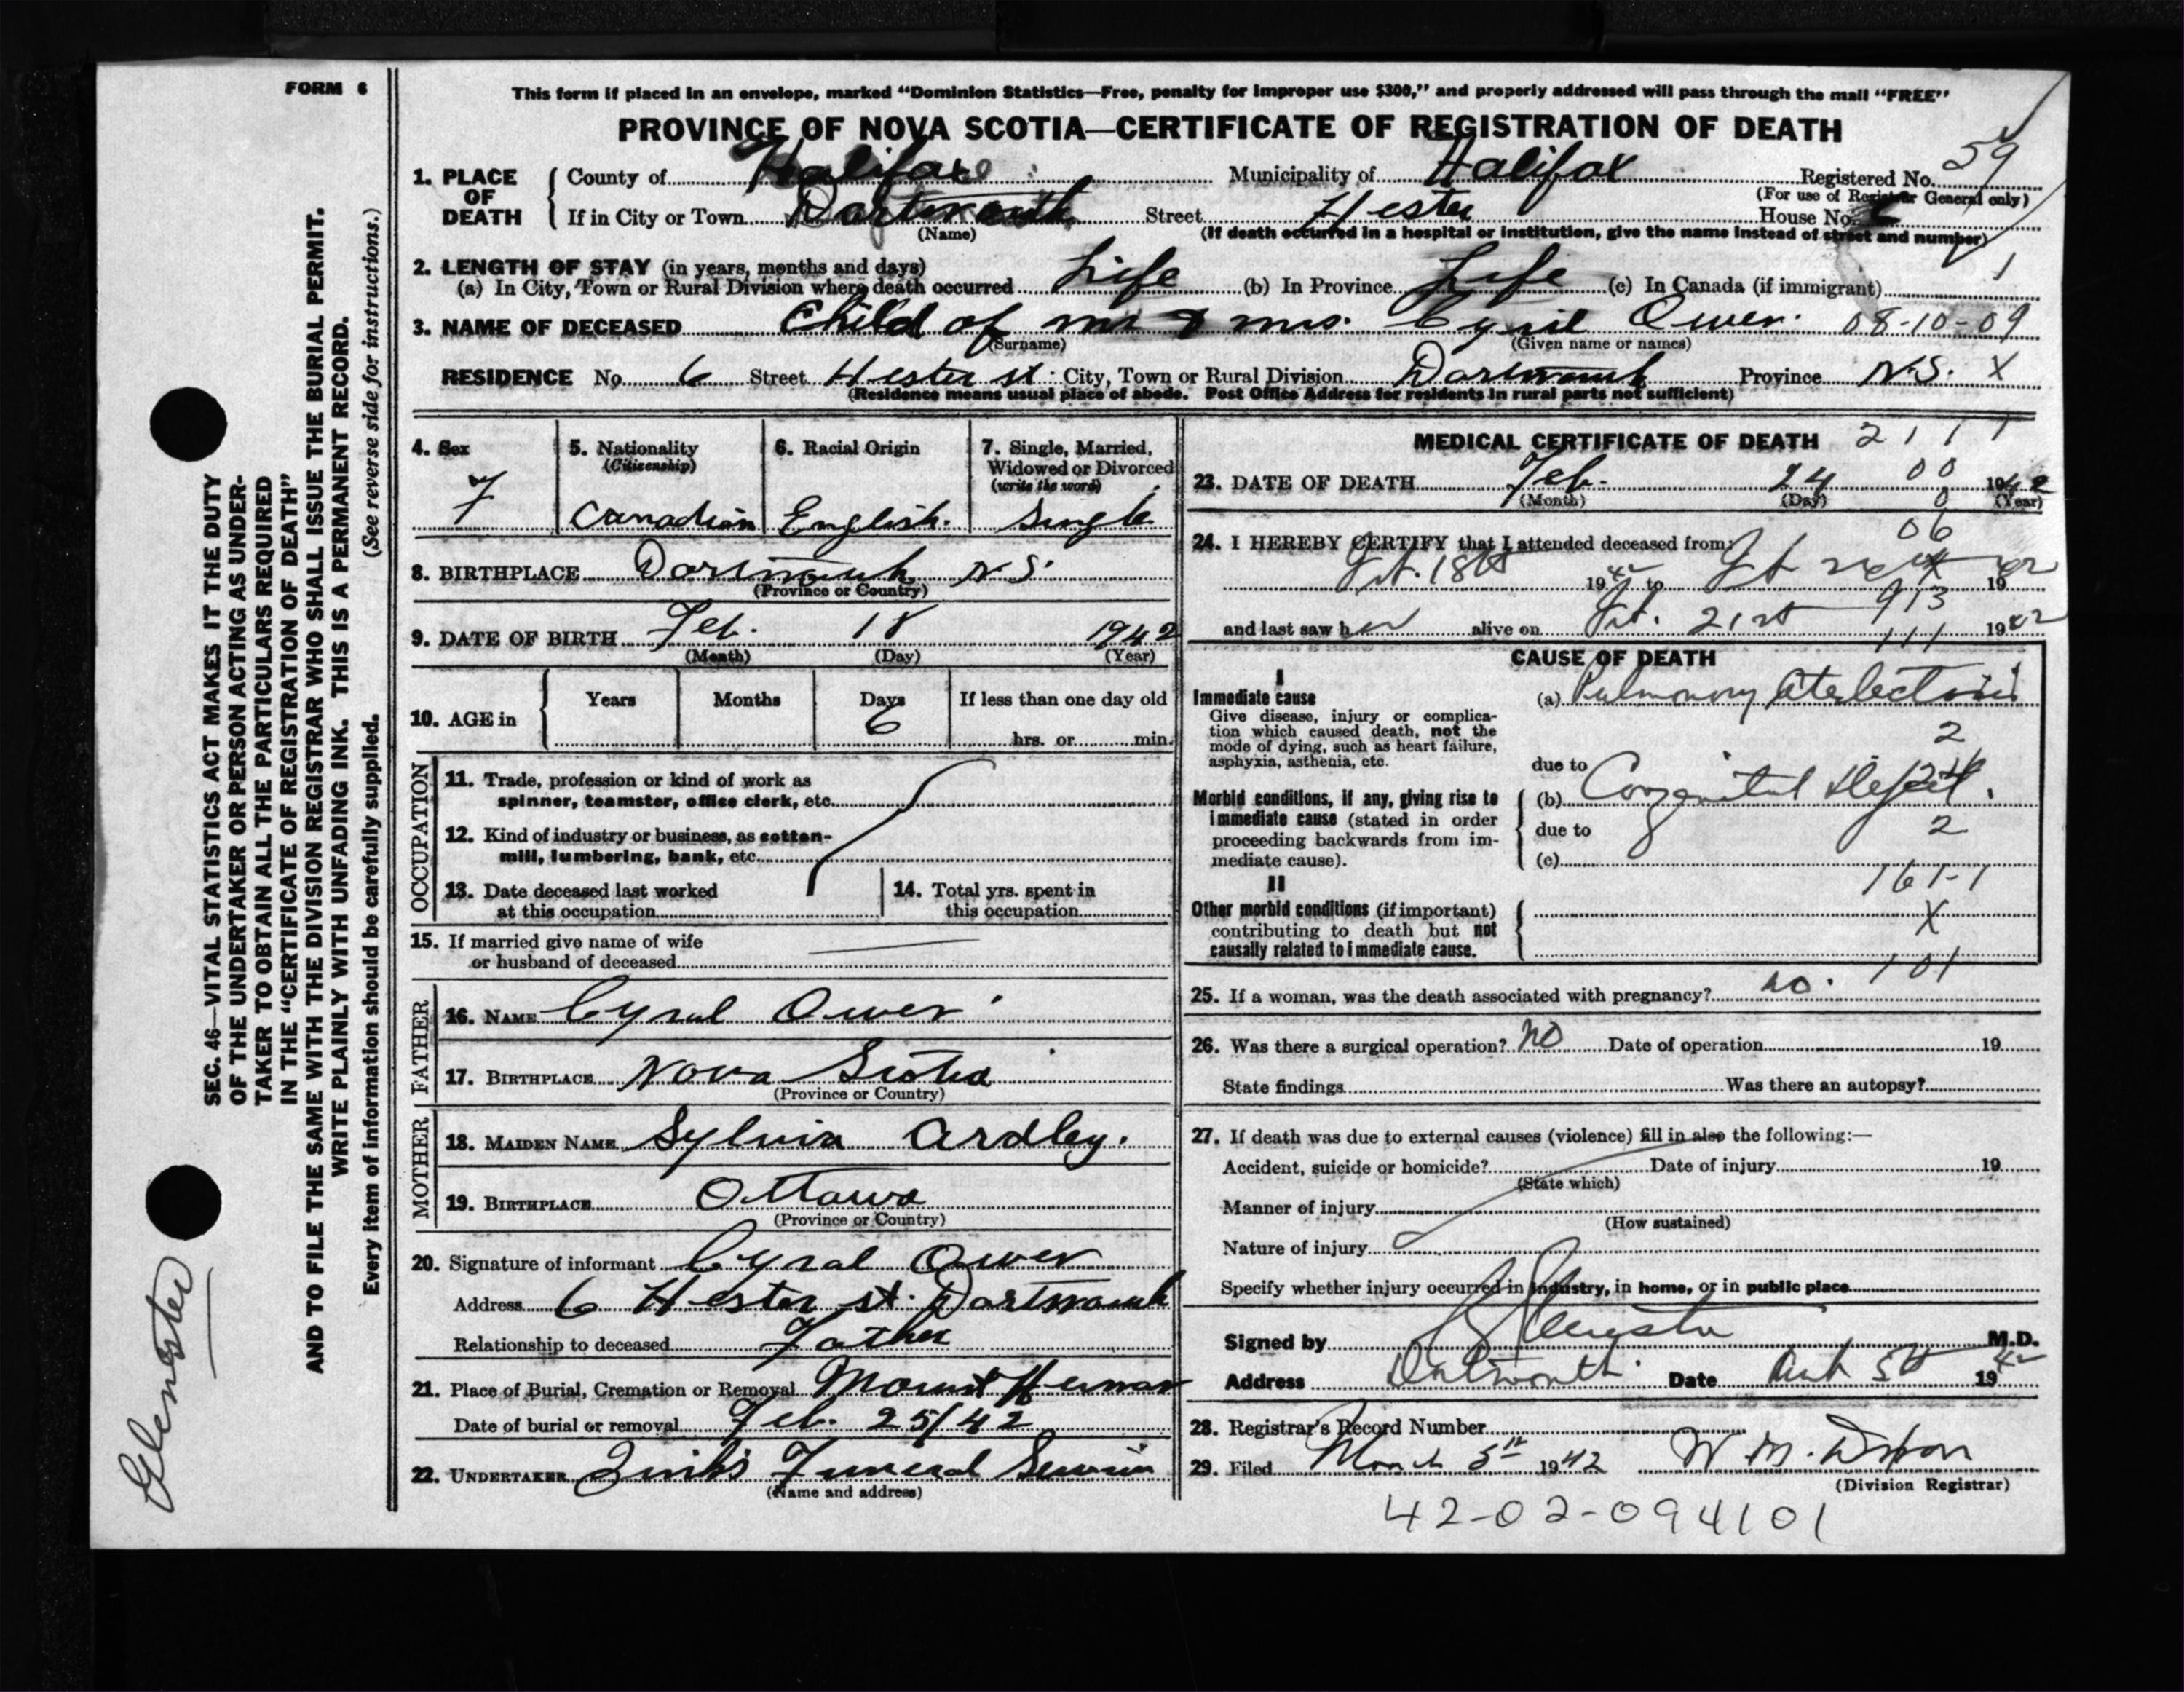 FORM 6
This form if placed in an envelope, marked “Dominion Statistics—Free, penalty for improper use $300,” and properly addressed will pass through the mail “FREE”
PROVINCE OF NOVA SCOTIA—CERTIFICATE OF REGISTRATION OF DEATH
59
1. PLACE OF DEATH
County of Halifax Municipality of Halifax Registered No.
(For use of Registrar General only)
If in City or Town Dartmouth Street Hester House No. 6
(Name) (If death occurred in a hospital or institution, give the name instead of street and number)
2. LENGTH OF STAY (in years, months and days)
(a) In City, Town or Rural Division where death occurred Life (b) In Province Life (c) In Canada (if immigrant) 1
3. NAME OF DECEASED Child of mr & mrs. Cyril Owen. 08-10-09
(Surname) (Given name or names)
RESIDENCE No. 6 Street Hester st. City, Town or Rural Division Dartmouth Province N.S. X
(Residence means usual place of abode. Post Office Address for residents in rural parts not sufficient)
4. Sex
F
5. Nationality
(Citizenship)
Canadian
6. Racial Origin
English.
7. Single, Married, Widowed or Divorced
(write the word)
Single
8. BIRTHPLACE Dartmouth N.S.
(Province or Country)
9. DATE OF BIRTH Feb. 18 1942
(Month) (Day) (Year)
10. AGE in
Years Months Days If less than one day old
6 hrs. or min.
OCCUPATION
11. Trade, profession or kind of work as
spinner, teamster, office clerk, etc.
12. Kind of industry or business, as cotton-
mill, lumbering, bank, etc.
13. Date deceased last worked
at this occupation
14. Total yrs. spent in
this occupation
15. If married give name of wife
or husband of deceased
FATHER
16. NAME Cyral Owen
17. BIRTHPLACE Nova Scotia
(Province or Country)
MOTHER
18. MAIDEN NAME Sylvia Ardley.
19. BIRTHPLACE Ottawa
(Province or Country)
20. Signature of informant Cyral Owen
Address 6 Hester st. Dartmouth
Relationship to deceased Father
21. Place of Burial, Cremation or Removal Mount Herman
Date of burial or removal Feb. 25/42
22. UNDERTAKER Funeral Service
(Name and address)
MEDICAL CERTIFICATE OF DEATH 2 1 1 1
23. DATE OF DEATH Feb. 24 00 1942
(Month) (Day) 0 (Year)
06
24. I HEREBY CERTIFY that I attended deceased from:
18th 1942 to 1942
913
and last saw her alive on 21st 1942
111
CAUSE OF DEATH
I
Immediate cause
Give disease, injury or complica-
tion which caused death, not the
mode of dying, such as heart failure,
asphyxia, asthenia, etc.
(a) Pulmonary Atelectasis
2
due to
Morbid conditions, if any, giving rise to
immediate cause (stated in order
proceeding backwards from im-
mediate cause).
(b) Congenital defect.
due to 2
(c)
161-1
II
Other morbid conditions (if important)
contributing to death but not
causally related to immediate cause.
X
101
25. If a woman, was the death associated with pregnancy? no.
26. Was there a surgical operation? NO Date of operation 19
State findings Was there an autopsy?
27. If death was due to external causes (violence) fill in also the following:—
Accident, suicide or homicide? Date of injury 19
(State which)
Manner of injury
(How sustained)
Nature of injury
Specify whether injury occurred in industry, in home, or in public place
Signed by M.D.
Address Dartmouth Date 5th 1942
28. Registrar's Record Number
29. Filed March 5th 1942 W. M.
(Division Registrar)
42-02-094101
SEC. 46—VITAL STATISTICS ACT MAKES IT THE DUTY
OF THE UNDERTAKER OR PERSON ACTING AS UNDER-
TAKER TO OBTAIN ALL THE PARTICULARS REQUIRED
IN THE “CERTIFICATE OF REGISTRATION OF DEATH”
AND TO FILE THE SAME WITH THE DIVISION REGISTRAR WHO SHALL ISSUE THE BURIAL PERMIT.
WRITE PLAINLY WITH UNFADING INK. THIS IS A PERMANENT RECORD.
Every item of information should be carefully supplied. (See reverse side for instructions.)
Glenister